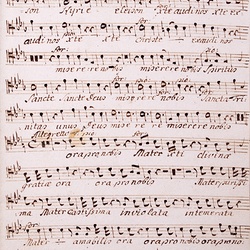 son Kyrie eleison Xte audi nos Xte ex
audi nos Xte Xte Christe exaudi nos
for:
miserere nobis miserere nobis Spiritus
Sancte Sancte Deus miserere nobis Sancta Tri
nitas unus Deus miserere miserere nobis
Allegro
ora pro nobis Mater Xti divinae
gratiae ora ora pro nobis Mater puris
ma Mater castissima inviolata intemerata
Mater amabilis ora ora pro nobis ora pro nobis